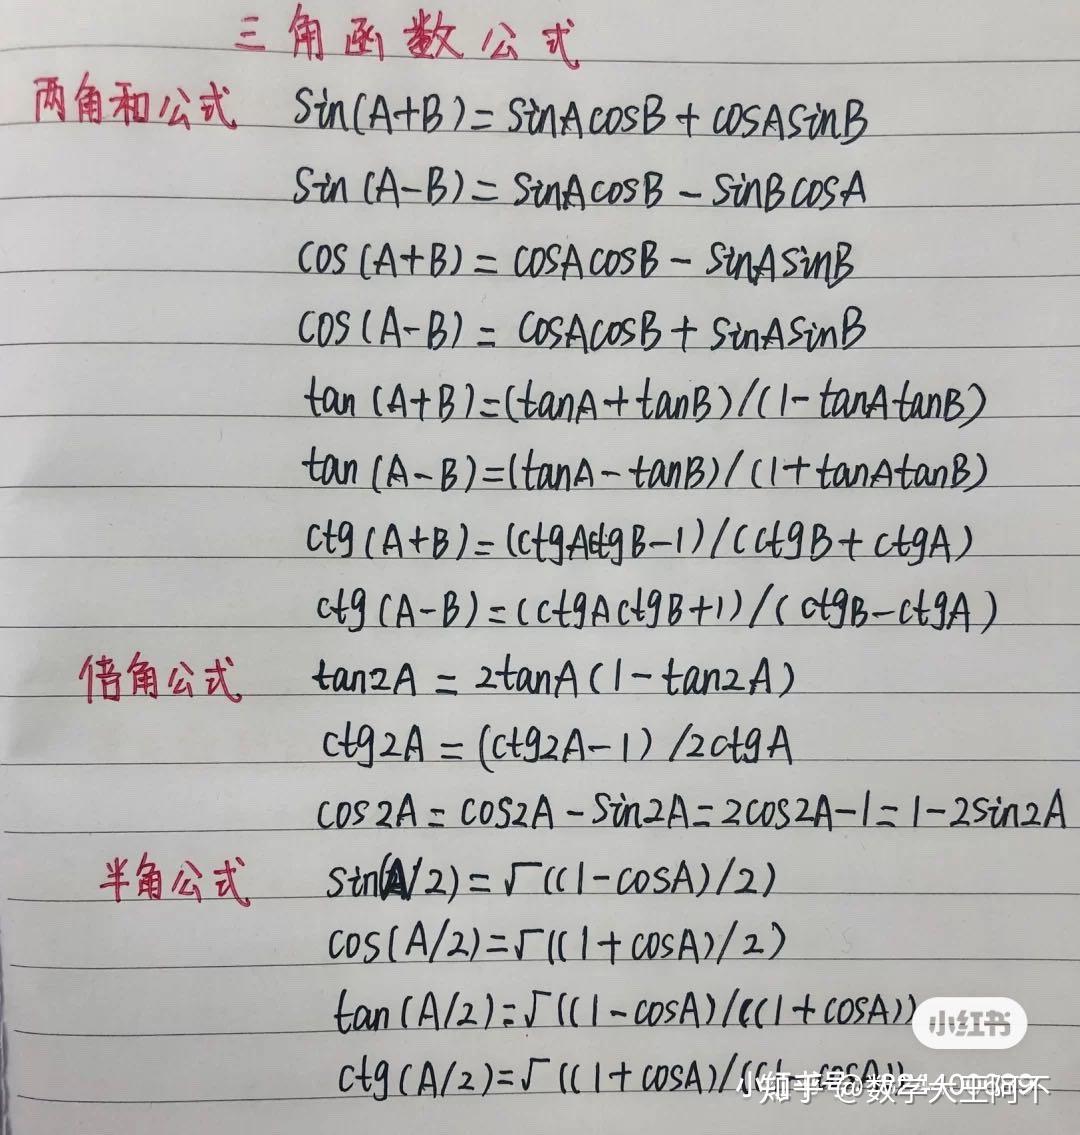 三角函数公式
两角和公式 sin(A+B)=sinAcosB+cosAsinB
sin(A-B)=sinAcosB-sinBcosA
cos(A+B)=cosAcosB-sinAsinB
cos(A-B)=cosAcosB+sinAsinB
tan(A+B)=(tanA+tanB)/(1-tanAtanB)
tan(A-B)=(tanA-tanB)/(1+tanAtanB)
ctg(A+B)=(ctgActgB-1)/(ctgB+ctgA)
ctg(A-B)=(ctgActgB+1)/(ctgB-ctgA)
倍角公式 tan2A=2tanA(1-tan2A)
ctg2A=(ctg2A-1)/2ctgA
cos2A=cos2A-sin2A=2cos2A-1=1-2sin2A
半角公式 sin(A/2)=√((1-cosA)/2)
cos(A/2)=√((1+cosA)/2)
tan(A/2)=√((1-cosA)/((1+cosA))
小红书
ctg(A/2)=√((1+cosA)/((1-cosA))
知乎 @数学大王阿不